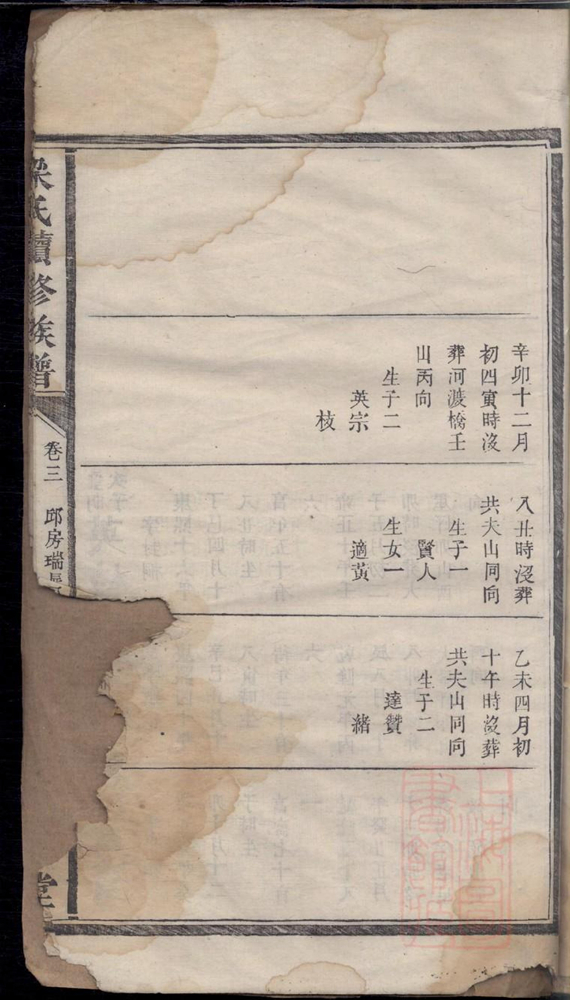 辛卯十二月
初四寅時沒
葬河渡橋壬
山丙向
生子二
英宗
枝
八丑時沒葬
共夫山同向
生子一
賢人
生女一
適黃
乙未四月初
十午時沒葬
共夫山同向
生子二
達贊
緒
梁氏續修族譜
卷三
邱房瑞
堂